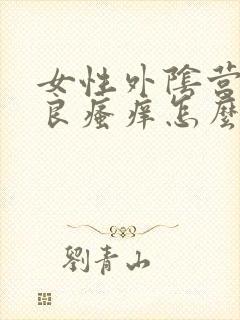 女性外陰营
良瘙痒怎麼
劉青山